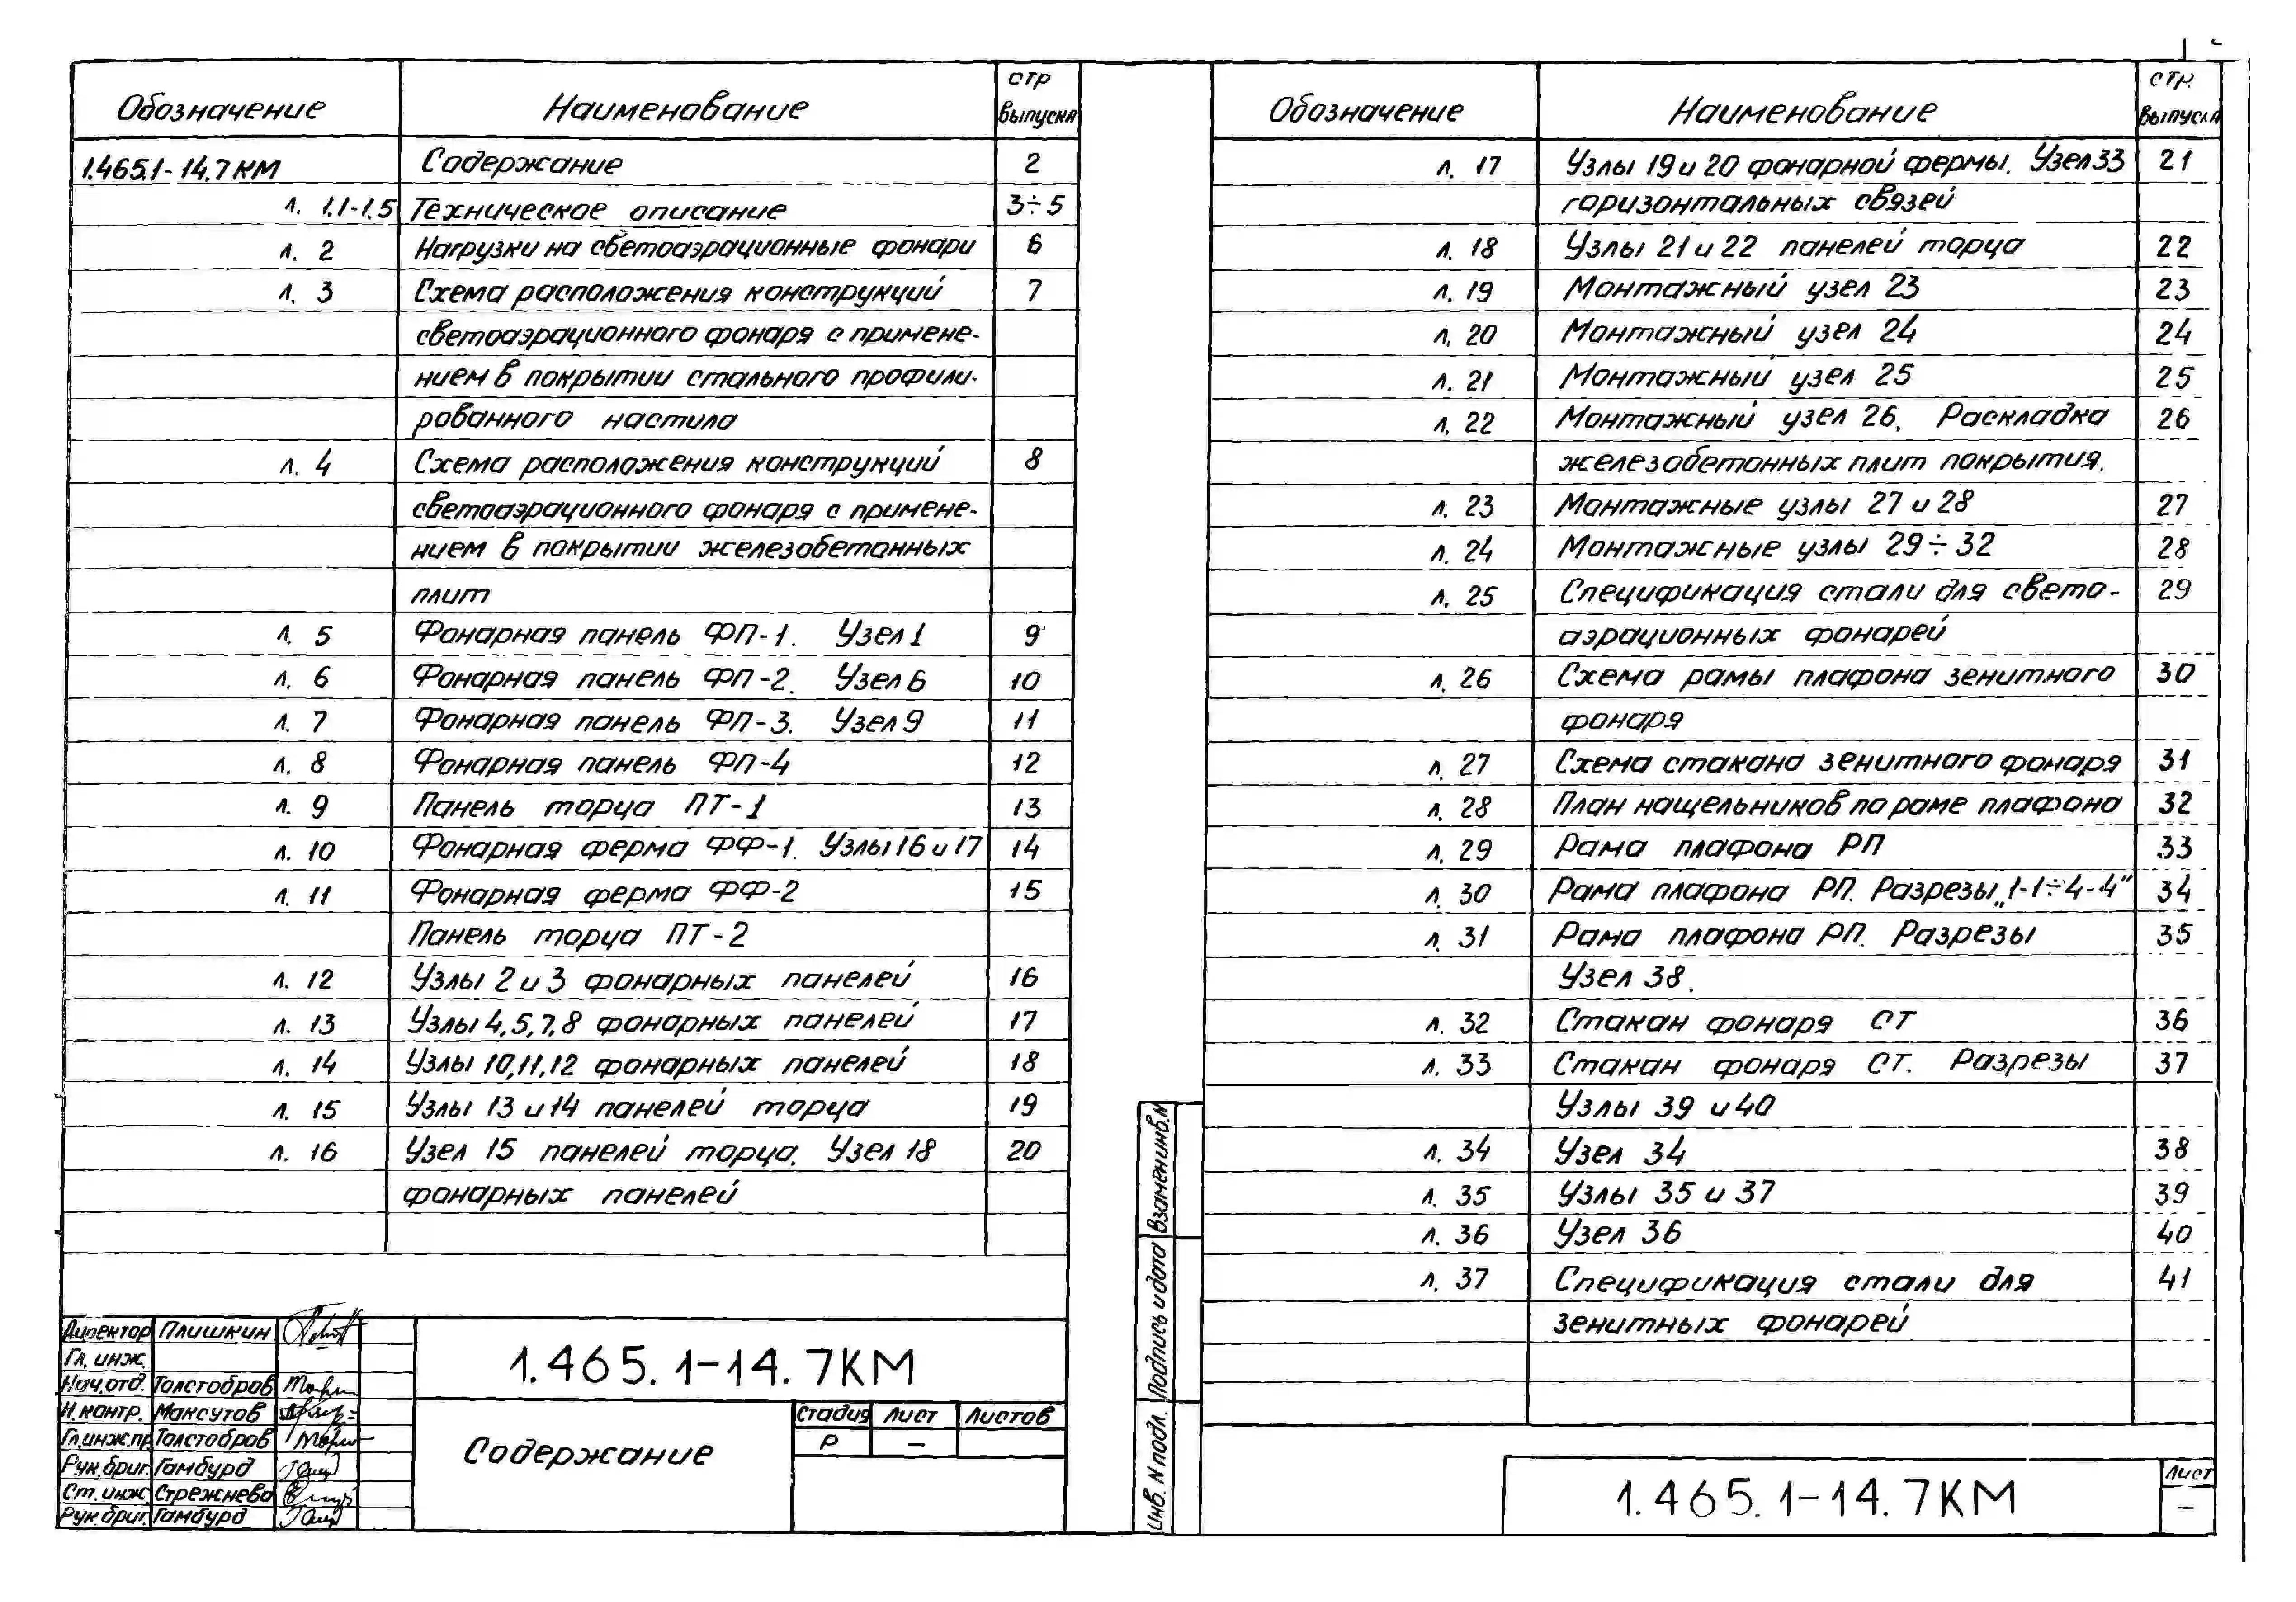 Обозначение Наименование стр выпуска
1.465.1-14.7КМ Содержание 2
л. 1.1-1.5 Техническое описание 3÷5
л. 2 Нагрузки на светоаэрационные фонари 6
л. 3 Схема расположения конструкций 7
светоаэрационного фонаря с примене-
нием в покрытии стального профили-
рованного настила
л. 4 Схема расположения конструкций 8
светоаэрационного фонаря с примене-
нием в покрытии железобетонных
плит
л. 5 Фонарная панель ФП-1. Узел 1 9
л. 6 Фонарная панель ФП-2. Узел 6 10
л. 7 Фонарная панель ФП-3. Узел 9 11
л. 8 Фонарная панель ФП-4 12
л. 9 Панель торца ПТ-1 13
л. 10 Фонарная ферма ФФ-1. Узлы 16 и 17 14
л. 11 Фонарная ферма ФФ-2 15
Панель торца ПТ-2
л. 12 Узлы 2 и 3 фонарных панелей 16
л. 13 Узлы 4,5,7,8 фонарных панелей 17
л. 14 Узлы 10,11,12 фонарных панелей 18
л. 15 Узлы 13 и 14 панелей торца 19
л. 16 Узел 15 панелей торца. Узел 18 20
фонарных панелей
Директор Плишкин
Гл. инж.
Нач. отд. Толстобров
Н. контр. Максутов
Гл.инж.пр. Толстобров
Рук.бриг. Гамбург
Ст. инж. Стрежнева
Рук.бриг. Гамбург
1.465.1-14.7КМ
Содержание
Стадия Лист Листов
Р –
Обозначение Наименование стр. выпуска
л. 17 Узлы 19 и 20 фонарной фермы. Узел 33 21
горизонтальных связей
л. 18 Узлы 21 и 22 панелей торца 22
л. 19 Монтажный узел 23 23
л. 20 Монтажный узел 24 24
л. 21 Монтажный узел 25 25
л. 22 Монтажный узел 26. Раскладка 26
железобетонных плит покрытия.
л. 23 Монтажные узлы 27 и 28 27
л. 24 Монтажные узлы 29÷32 28
л. 25 Спецификация стали для свето- 29
аэрационных фонарей
л. 26 Схема рамы плафона зенитного 30
фонаря
л. 27 Схема стакана зенитного фонаря 31
л. 28 План нащельников по раме плафона 32
л. 29 Рама плафона РП 33
л. 30 Рама плафона РП. Разрезы „1-1÷4-4" 34
л. 31 Рама плафона РП. Разрезы 35
Узел 38.
л. 32 Стакан фонаря СТ 36
л. 33 Стакан фонаря СТ. Разрезы 37
Узлы 39 и 40
л. 34 Узел 34 38
л. 35 Узлы 35 и 37 39
л. 36 Узел 36 40
л. 37 Спецификация стали для 41
зенитных фонарей
Взамен инв.N
Подпись и дата
Инв. N подл.
1.465.1-14.7КМ
Лист
–